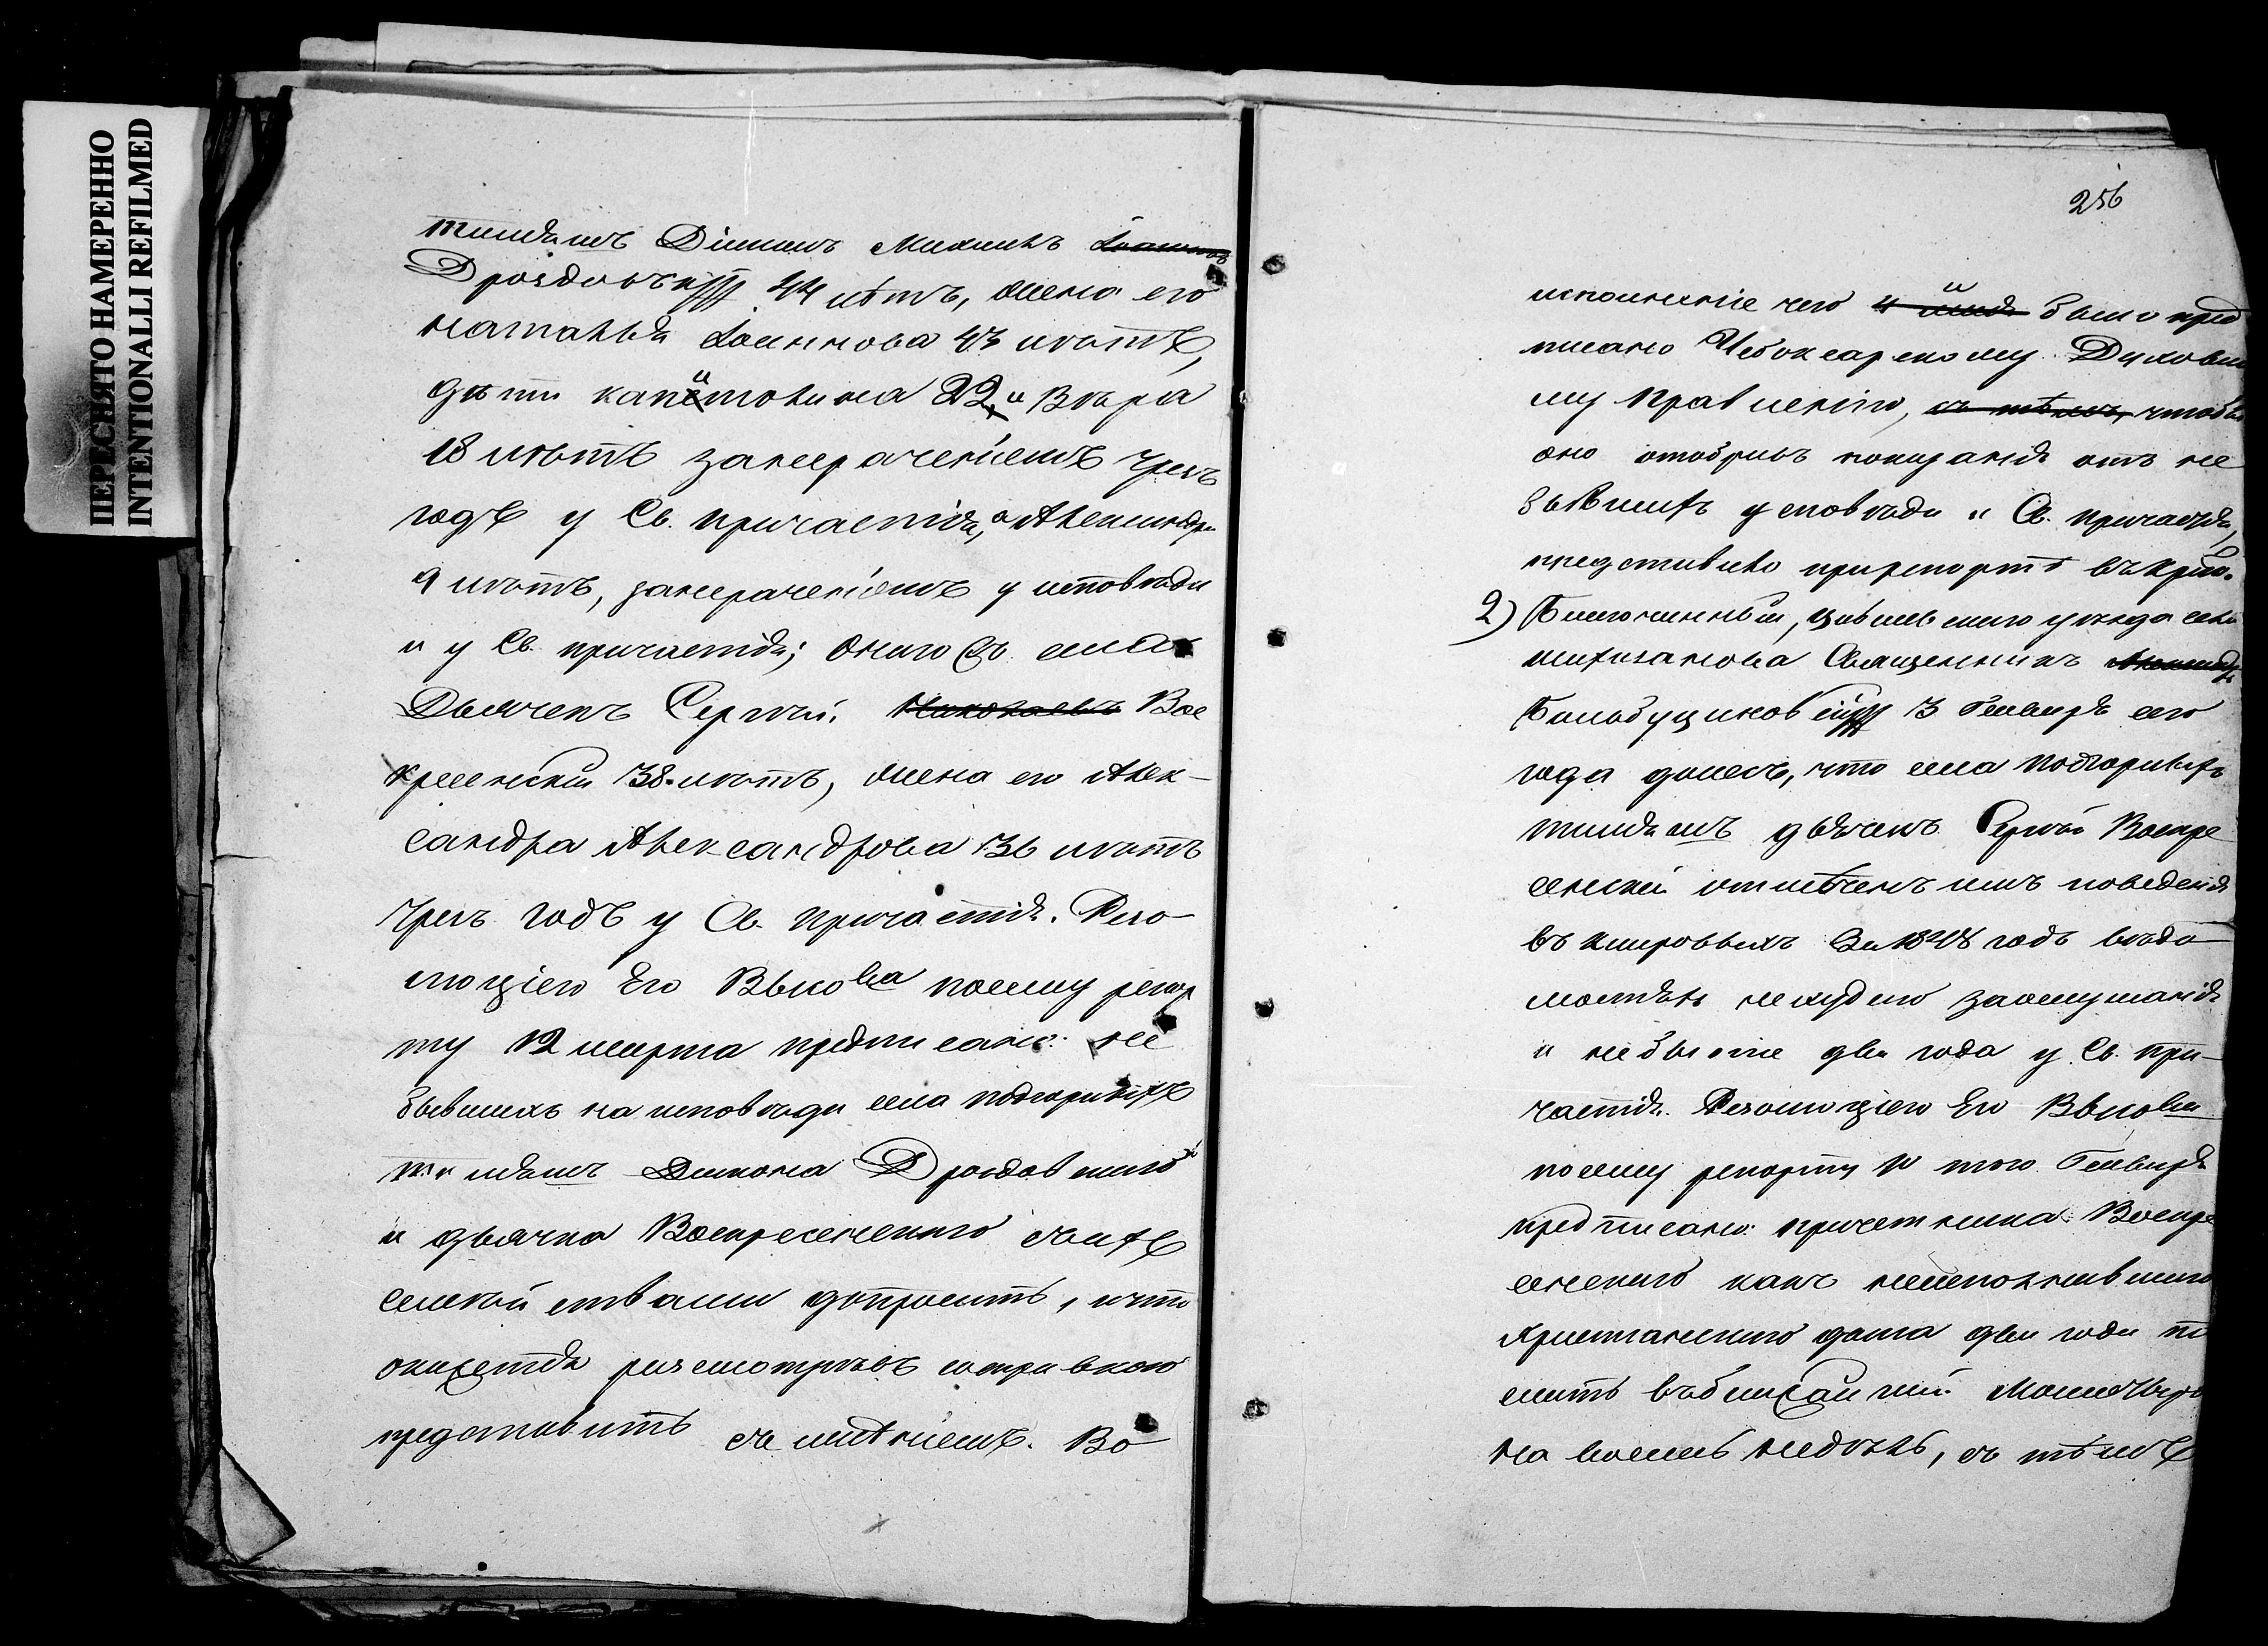 ПЕРЕСНЯТО НАМЕРЕННО
INTENTIONALLI REFILMED
тимяшъ Діаконъ Михаилъ Іоанновъ
Дроздовскій 44 лѣтъ, жена его
Наталья Іоаннова 43 лѣтъ,
дѣти Капитолина 22, и Вѣра
18 лѣтъ за нераченіемъ чрезъ
годъ у Св. причастія, а Александра
9 лѣтъ, за нераченіемъ у исповѣди
и у Св. причастія; онаго же села
Дьячекъ Сергѣй Николаевъ Вос
кресенскій 38 лѣтъ, жена его Алек-
сандра Александрова 36 лѣтъ
чрезъ годъ у Св. Причастія. Резо-
люціею Его Высо ва по сему репор
ту 12 марта предписано: не
бывшихъ на исповѣди села Подгорныхъ
тимяшъ Діакона Дроздовскаго
и дьячка Воскресенскаго съ ихъ
семействами допросить, и что
окажется разсмотрѣвъ со справкою
представить съ мнѣніемъ. Во
256
исполненіе чего и было пред
писано Чебоксарскому Духовно
му Правленію, съ тѣмъ, чтобы
оно отобравъ показанія отъ не
бывшихъ у исповѣди и Св. причастія,
представило при репортѣ
2) Благочинный, Цивильскаго уѣзда села
Священникъ
3 Генваря сего
года донесъ, что села Подгорныхъ
тимяшъ дьячекъ Сергѣй Воскре
сенскій отмѣченъ имъ поведенія
въ клировыхъ за 1848 годъ вѣдо
мостяхъ нехудаго за ослушанія
и небытіе два года у Св. При-
частія. Резолюціею Его Высо ва
по сему репорту 10 того Генваря
предписано: причетника Воскре
сенскаго какъ неисполнившаго
христіанскаго долга два года по
слать въ ближайшій Монастырь
на восемь недѣль, съ тѣмъ